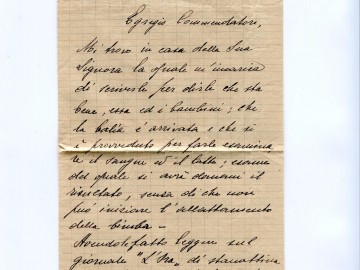 Egregio Commendatore,
Mi trovo in casa della Sua
Signora la quale m'incarica
di scriverle per dirle che sta
bene, essa ed i bambini; che
la balia è arrivata e che si
è provveduto per farle esamina
re il sangue ed il latte; esame
del quale si avrà domani il
risultato, senza di che non
può iniziare l'allattamento
della bimba.-
Avendole fatto leggere sul
giornale "L'Ora" di stamattina